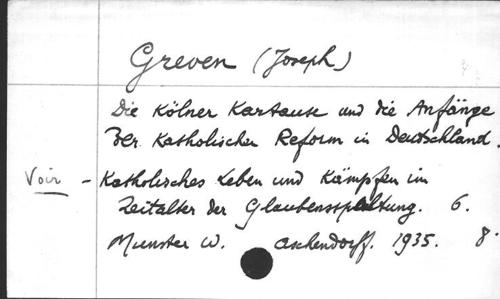 Greven (Joseph)
Die Kölner Kartause und die Anfänge
der Katholischer Reform in Deutschland.
Voir - Katholisches Leben und Kämpfen im
Zeitalter der Glaubensspaltung. 6.
Munster W. Aschendorff. 1935. 8°